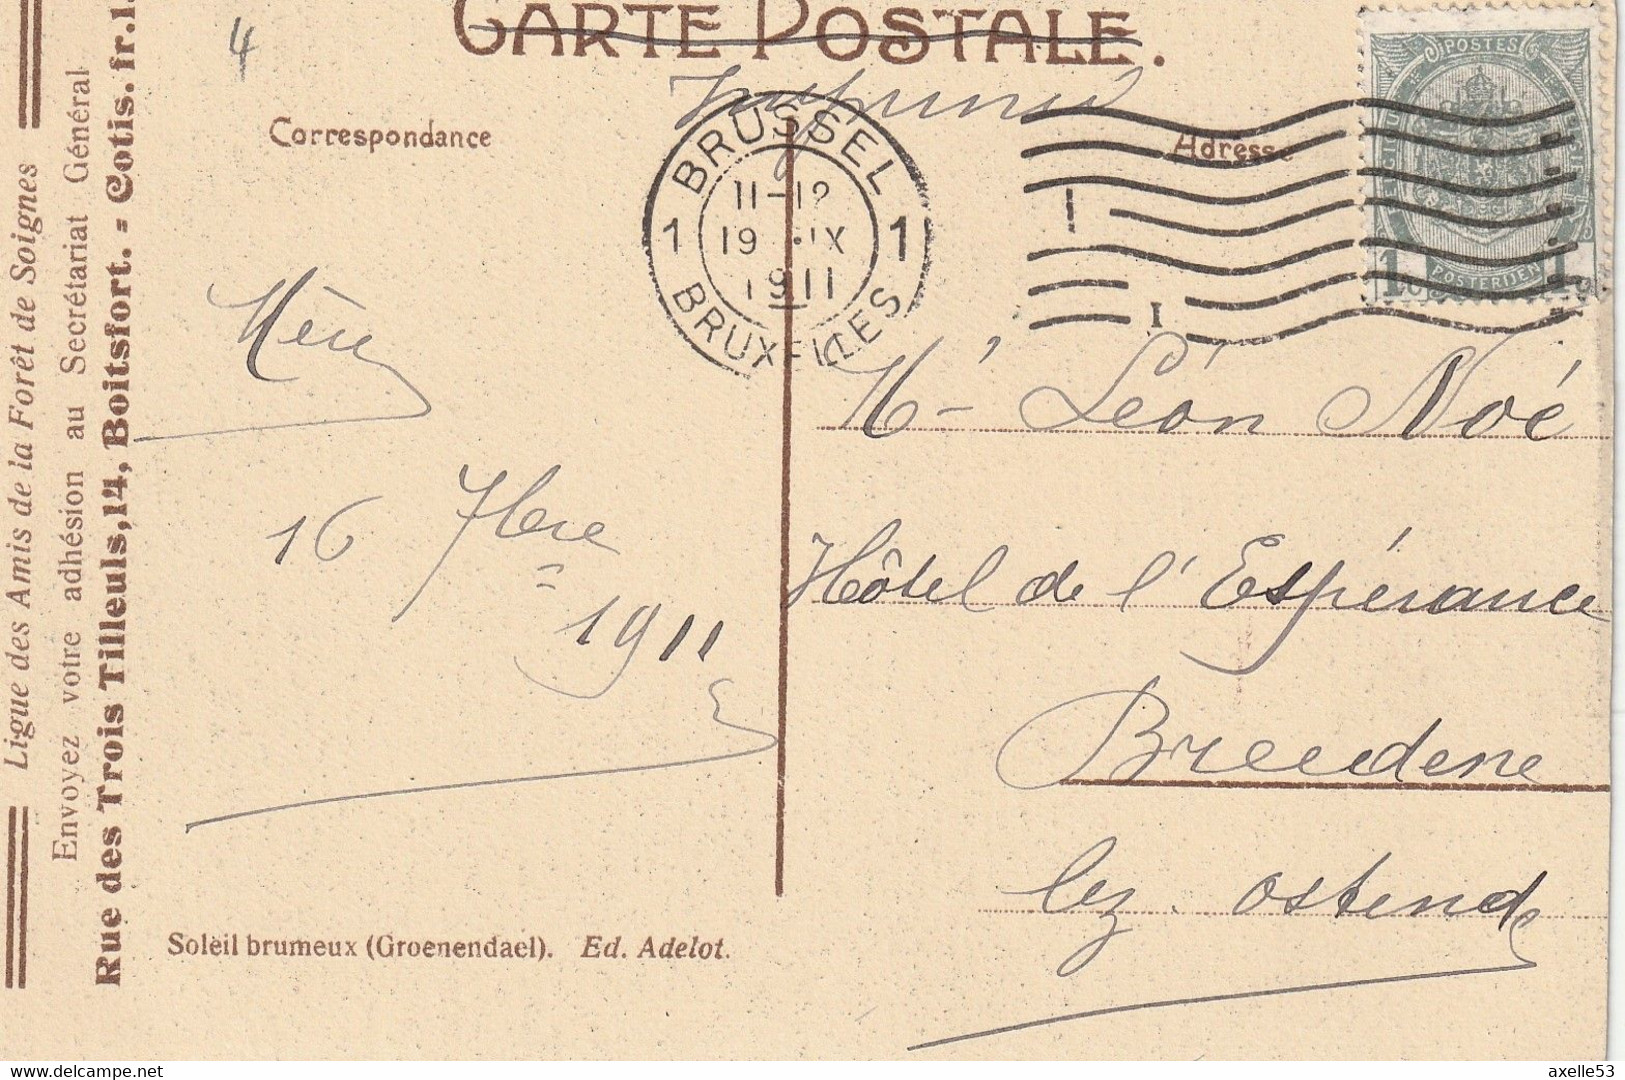 CARTE POSTALE.
Imprimé
4
Correspondance
Adresse
BRUSSEL
11-12
1 19 IX 1
1911
BRUXELLES
POSTES
POSTERIJEN
1 1
Ligue des Amis de la Forêt de Soignes
Envoyez votre adhésion au Secrétariat Général
Rue des Trois Tilleuls, 14, Boitsfort. - Cotis. fr. 1.
16 7bre
1911
Mr Léon Noé
Hôtel de l'Espérance
Breedene
lez. Ostende
Soleil brumeux (Groenendael). Ed. Adelot.
delcampe.net
axelle53